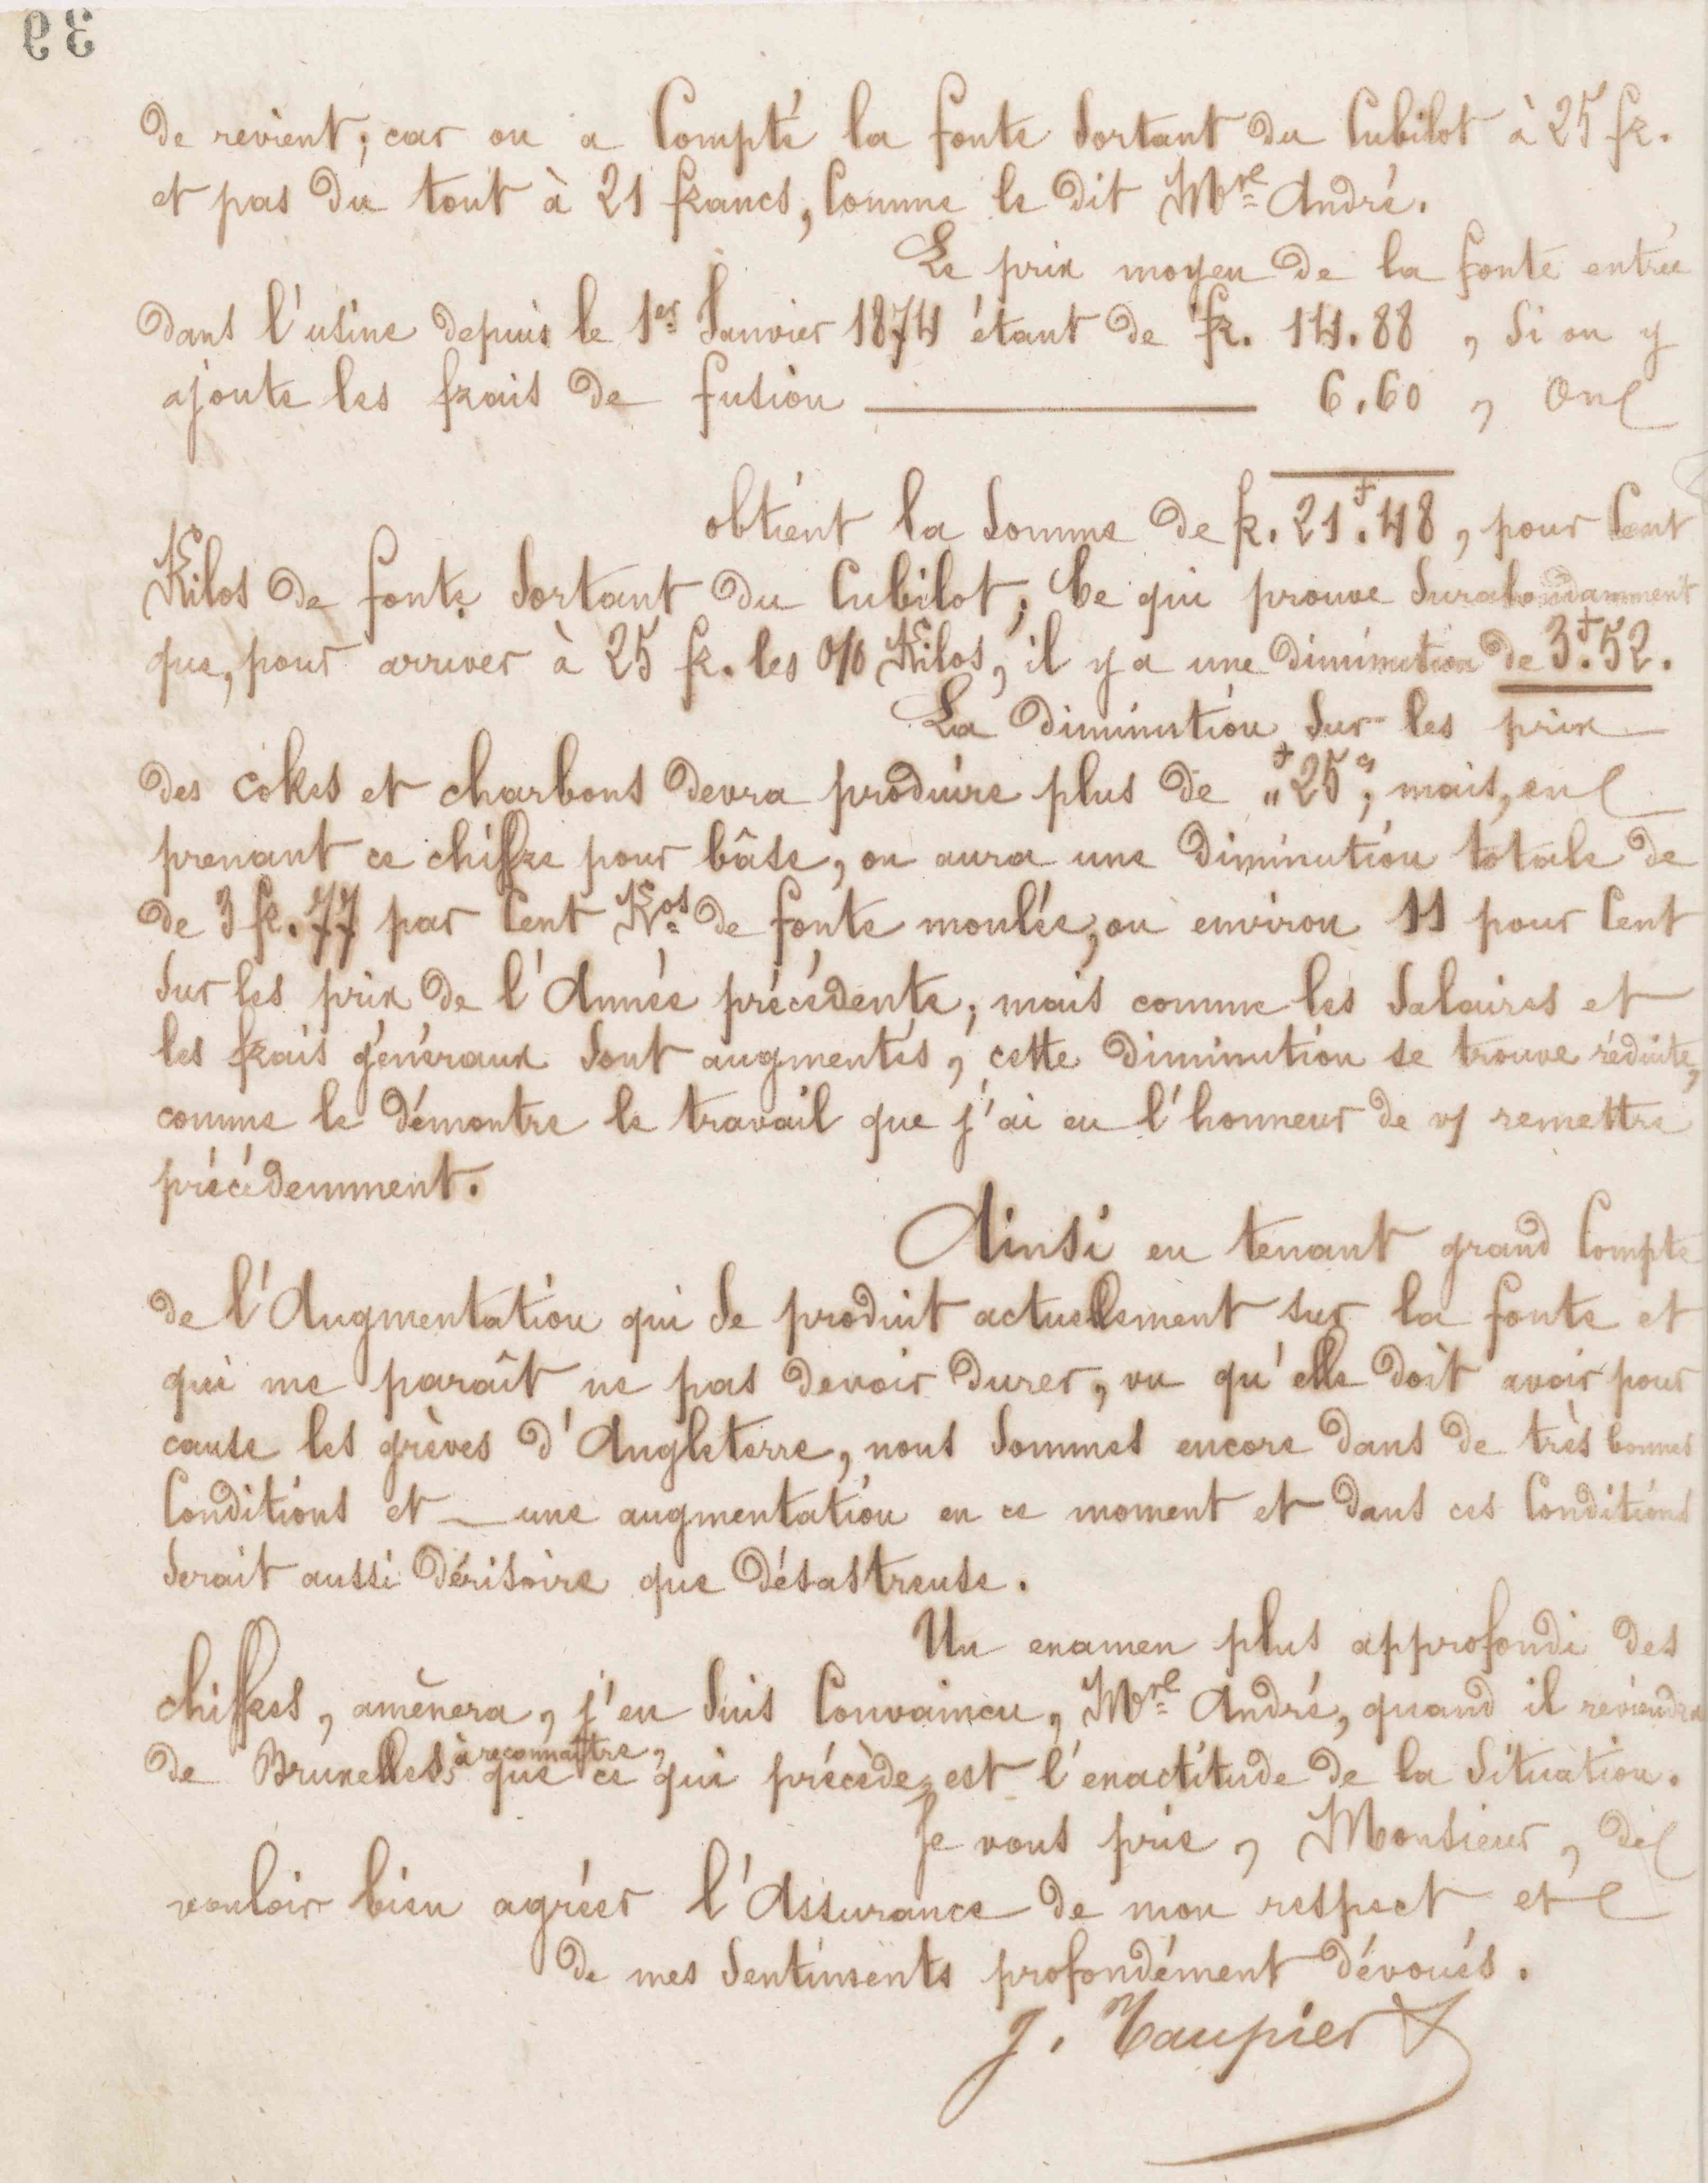 39
de revient; car on a Compté la fonte Sortant du Cubilot à 25 fr.
et pas du tout à 21 francs, Comme le dit Mr André.
Le prix moyen de la fonte entrée
dans l'usine depuis le 1er Janvier 1874 étant de fr. 14.88, Si on y
ajoute les frais de fusion ——— 6.60, On
obtient la Somme de fr. 21f.48, pour Cent
Kilos de fonte Sortant du Cubilot; Ce qui prouve Surabondamment
que, pour arriver à 25 fr. les 0/0 Kilos, il y a une diminution de 3f.52.
La diminution Sur les prix
des cokes et charbons devra produire plus de "f25c; mais, en
prenant ce chiffre pour bâse, on aura une diminution totale de
de 3 fr. 77 par Cent Kos de fonte moulée, ou environ 11 pour Cent
Sur les prix de l'Année précédente; mais comme les Salaires et
les frais généraux Sont augmentés, cette diminution se trouve réduite,
comme le démontre le travail que j'ai eu l'honneur de v/ remettre
précédemment.
Ainsi en tenant grand Compte
de l'Augmentation qui Se produit actuellement sur la fonte et
qui me paraît ne pas devoir durer, vu qu'elle doit avoir pour
cause les grèves d'Angleterre, nous Sommes encore dans de très bonnes
Conditions et — une augmentation en ce moment et dans ces Conditions
Serait aussi dérisoire que désastreuse.
Un examen plus approfondi des
chiffres, amènera, j'en Suis Convaincu, Mr André, quand il reviendra
de Bruxelles, à reconnaître, que ce qui précède, est l'exactitude de la Situation.
Je vous prie, Monsieur, de
vouloir bien agréer l'Assurance de mon respect et
de mes Sentiments profondément dévoués.
J. Taupier